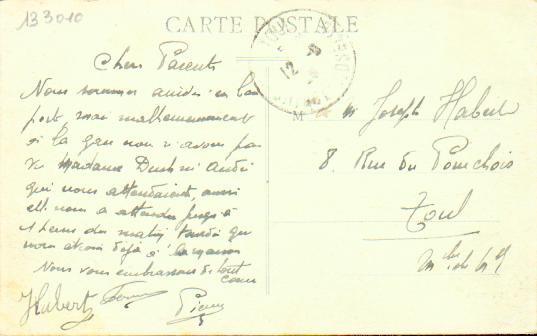 133010
CARTE POSTALE
Chers Parents
Nous sommes arrivés en bon
port mais malheureusement
à la gare nous n'avons pas
vu Madame André
qui nous attendait, aussi
elle nous a attendu jusqu'à
1 heure du matin tandis que
nous étions déjà à la maison
Nous vous embrassons de tout
coeur
Hubert
Pierre
M Joseph Habert
8. Rue du Pont
Toul